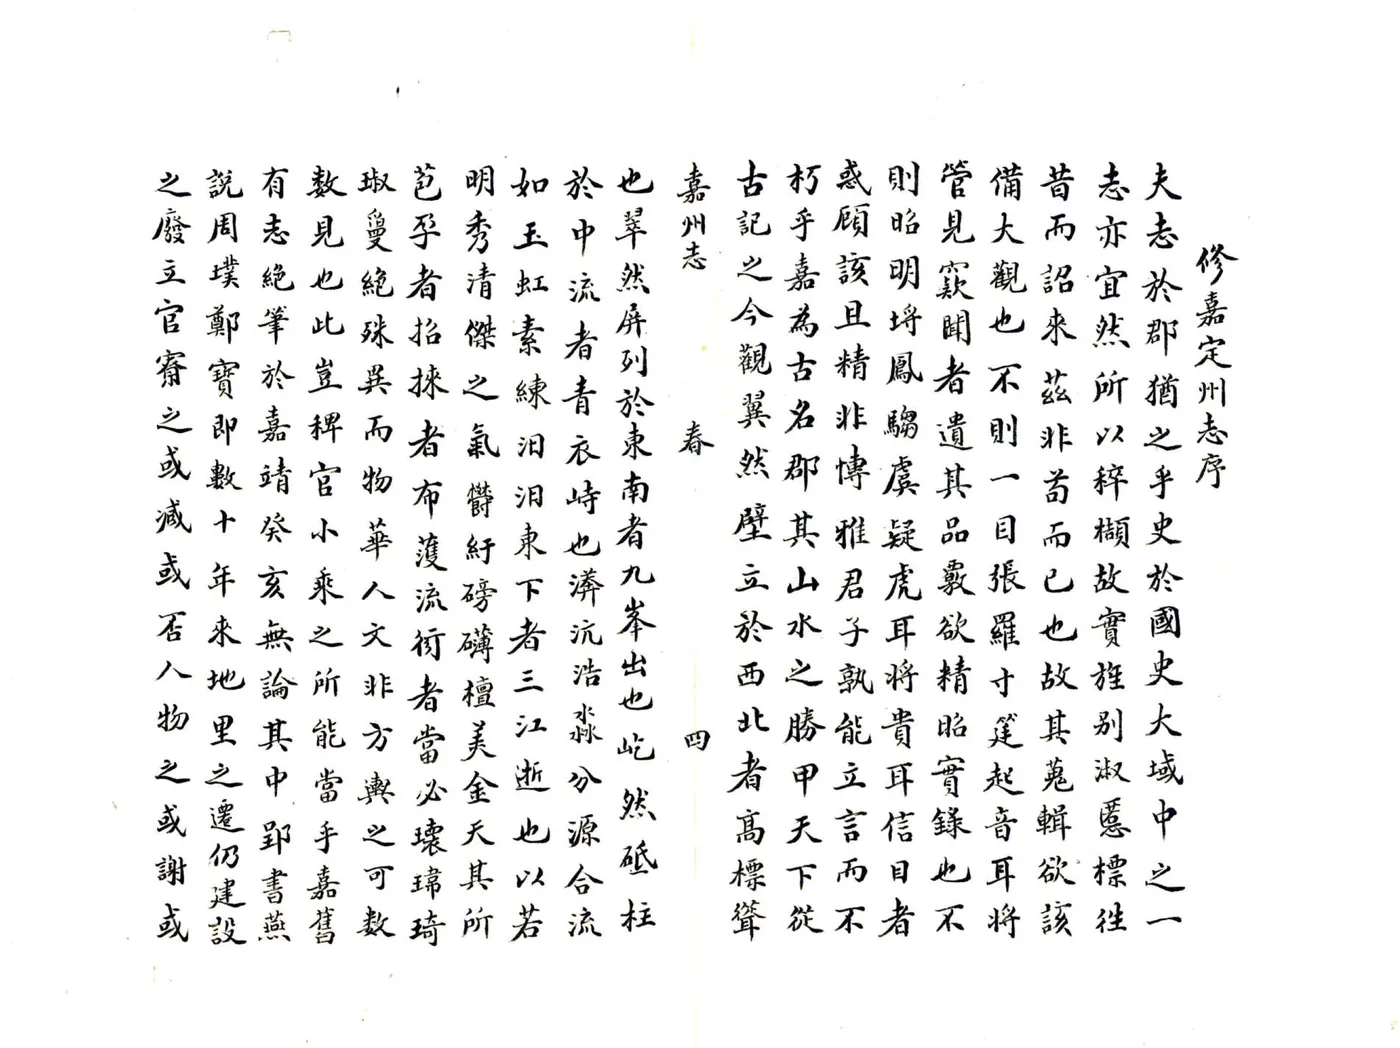 修嘉定州志序
夫志於郡猶之乎史於國史大域中之一
志亦宜然所以稡擷故實旌别淑慝標徃
昔而詔來茲非苟而已也故其蒐輯欲該
備大觀也不則一目張羅寸筳起音耳將
管見窾聞者遺其品覈欲精昭實錄也不
則昭明埓鳳騶虞疑虎耳將貴耳信目者
惑顧該且精非愽雅君子孰能立言而不
朽乎嘉為古名郡其山水之勝甲天下從
古記之今觀翼然壁立於西北者髙標聳
嘉州志 春 四
也翠然屏列於東南者九峯出也屹然砥柱
於中流者青衣峙也漭沆浩淼分源合流
如玉虹素練汨汨東下者三江逝也以若
明秀清傑之氣欝紆磅礴檀美金天其所
苞孕者招揀者布濩流衍者當必瓌瑋琦
琡敻絕殊異而物華人文非方輿之可数
数見也此豈稗官小乘之所能當乎嘉舊
有志絕筆於嘉靖癸亥無論其中郢書燕
説周璞鄭寶即數十年來地里之遷仍建設
之廢立官䆮之或减或否人物之或謝或